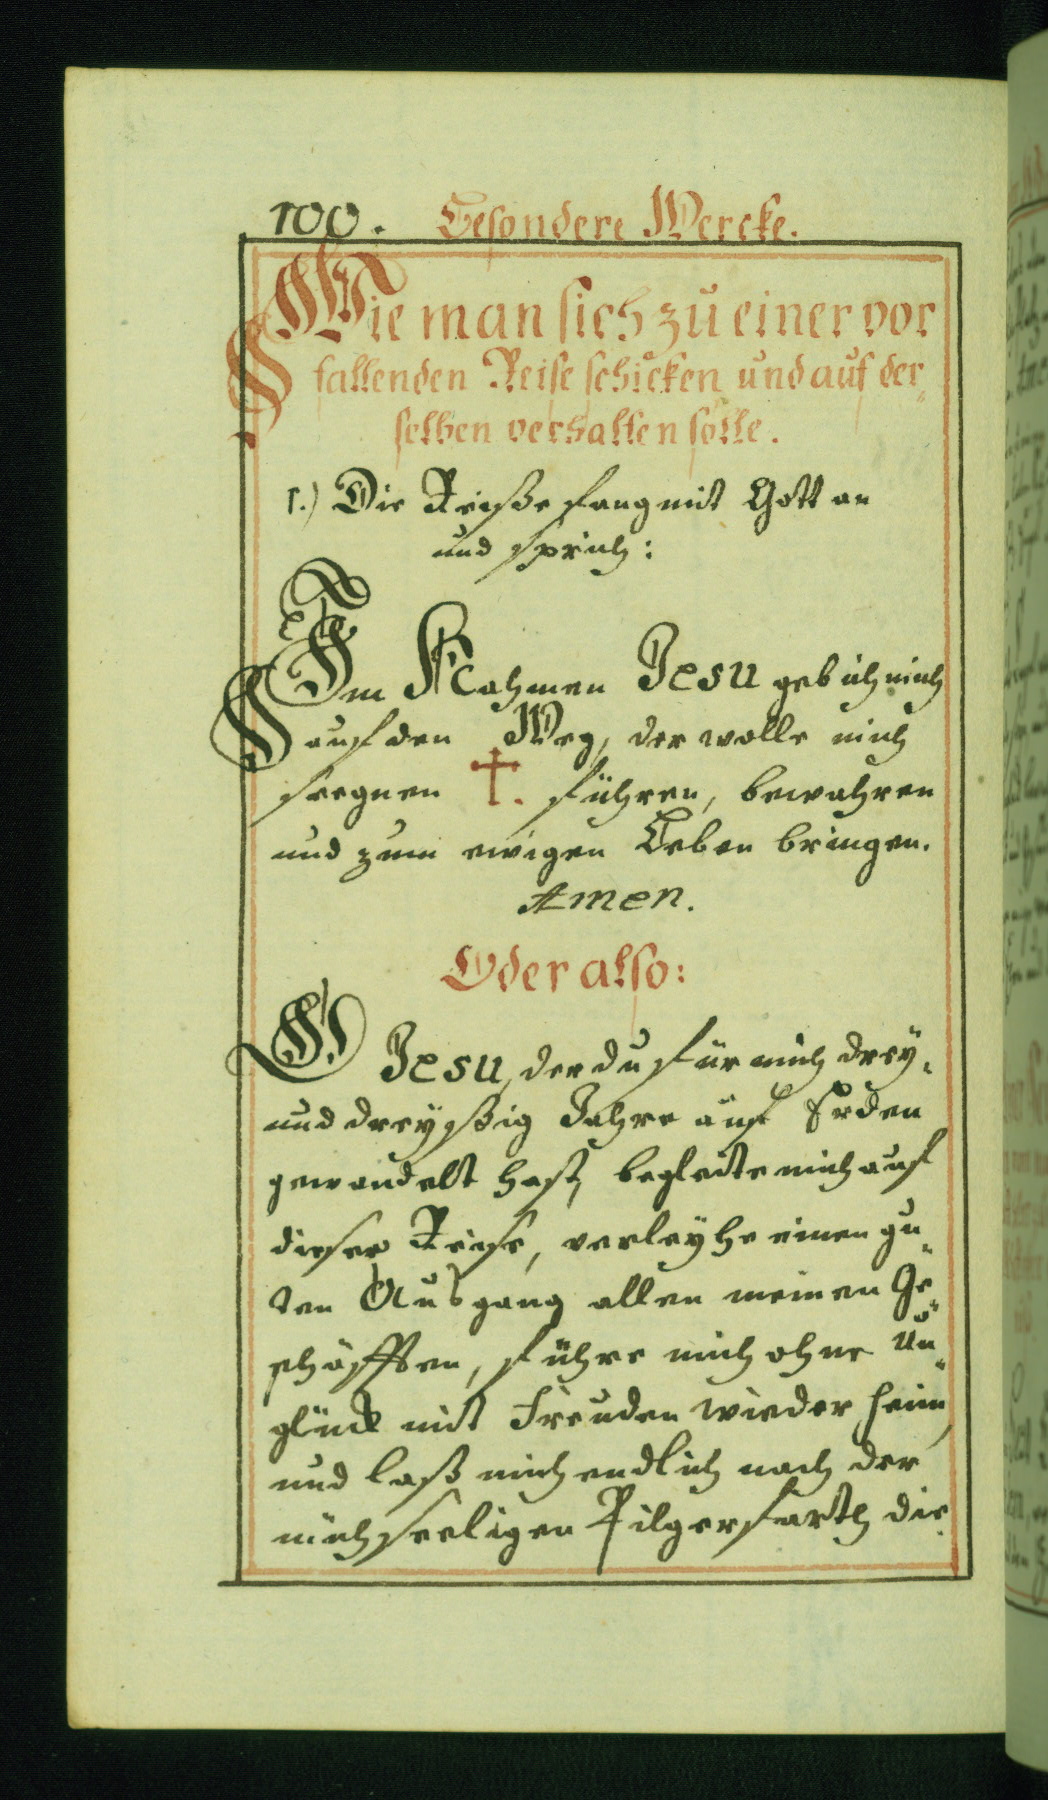 100. Besondere Wercke.
Wie man sich zu einer vor
fallenden Reise schicken und auf der,,
selben verhalten solle.
1.) Die Reiße fang mit Gott an
und sprich:
Im Nahmen Jesu geb ich mich
auf den Weg, der wolle mich
seegnen †. führen, bewahren
und zum ewigen Leben bringen.
Amen.
Oder also:
O Jesu, der du für mich drey,,
und dreyßig Jahre auf Erden
gewandelt hast, begleite mich auf
dieser Reise, verleyhe einen gu,,
ten Ausgang allen meinen Ge,,
schäfften, führe mich ohne Un,,
glück mit Freuden wieder heim,
und laß mich endlich nach der
mühseeligen Pilgerfarth die